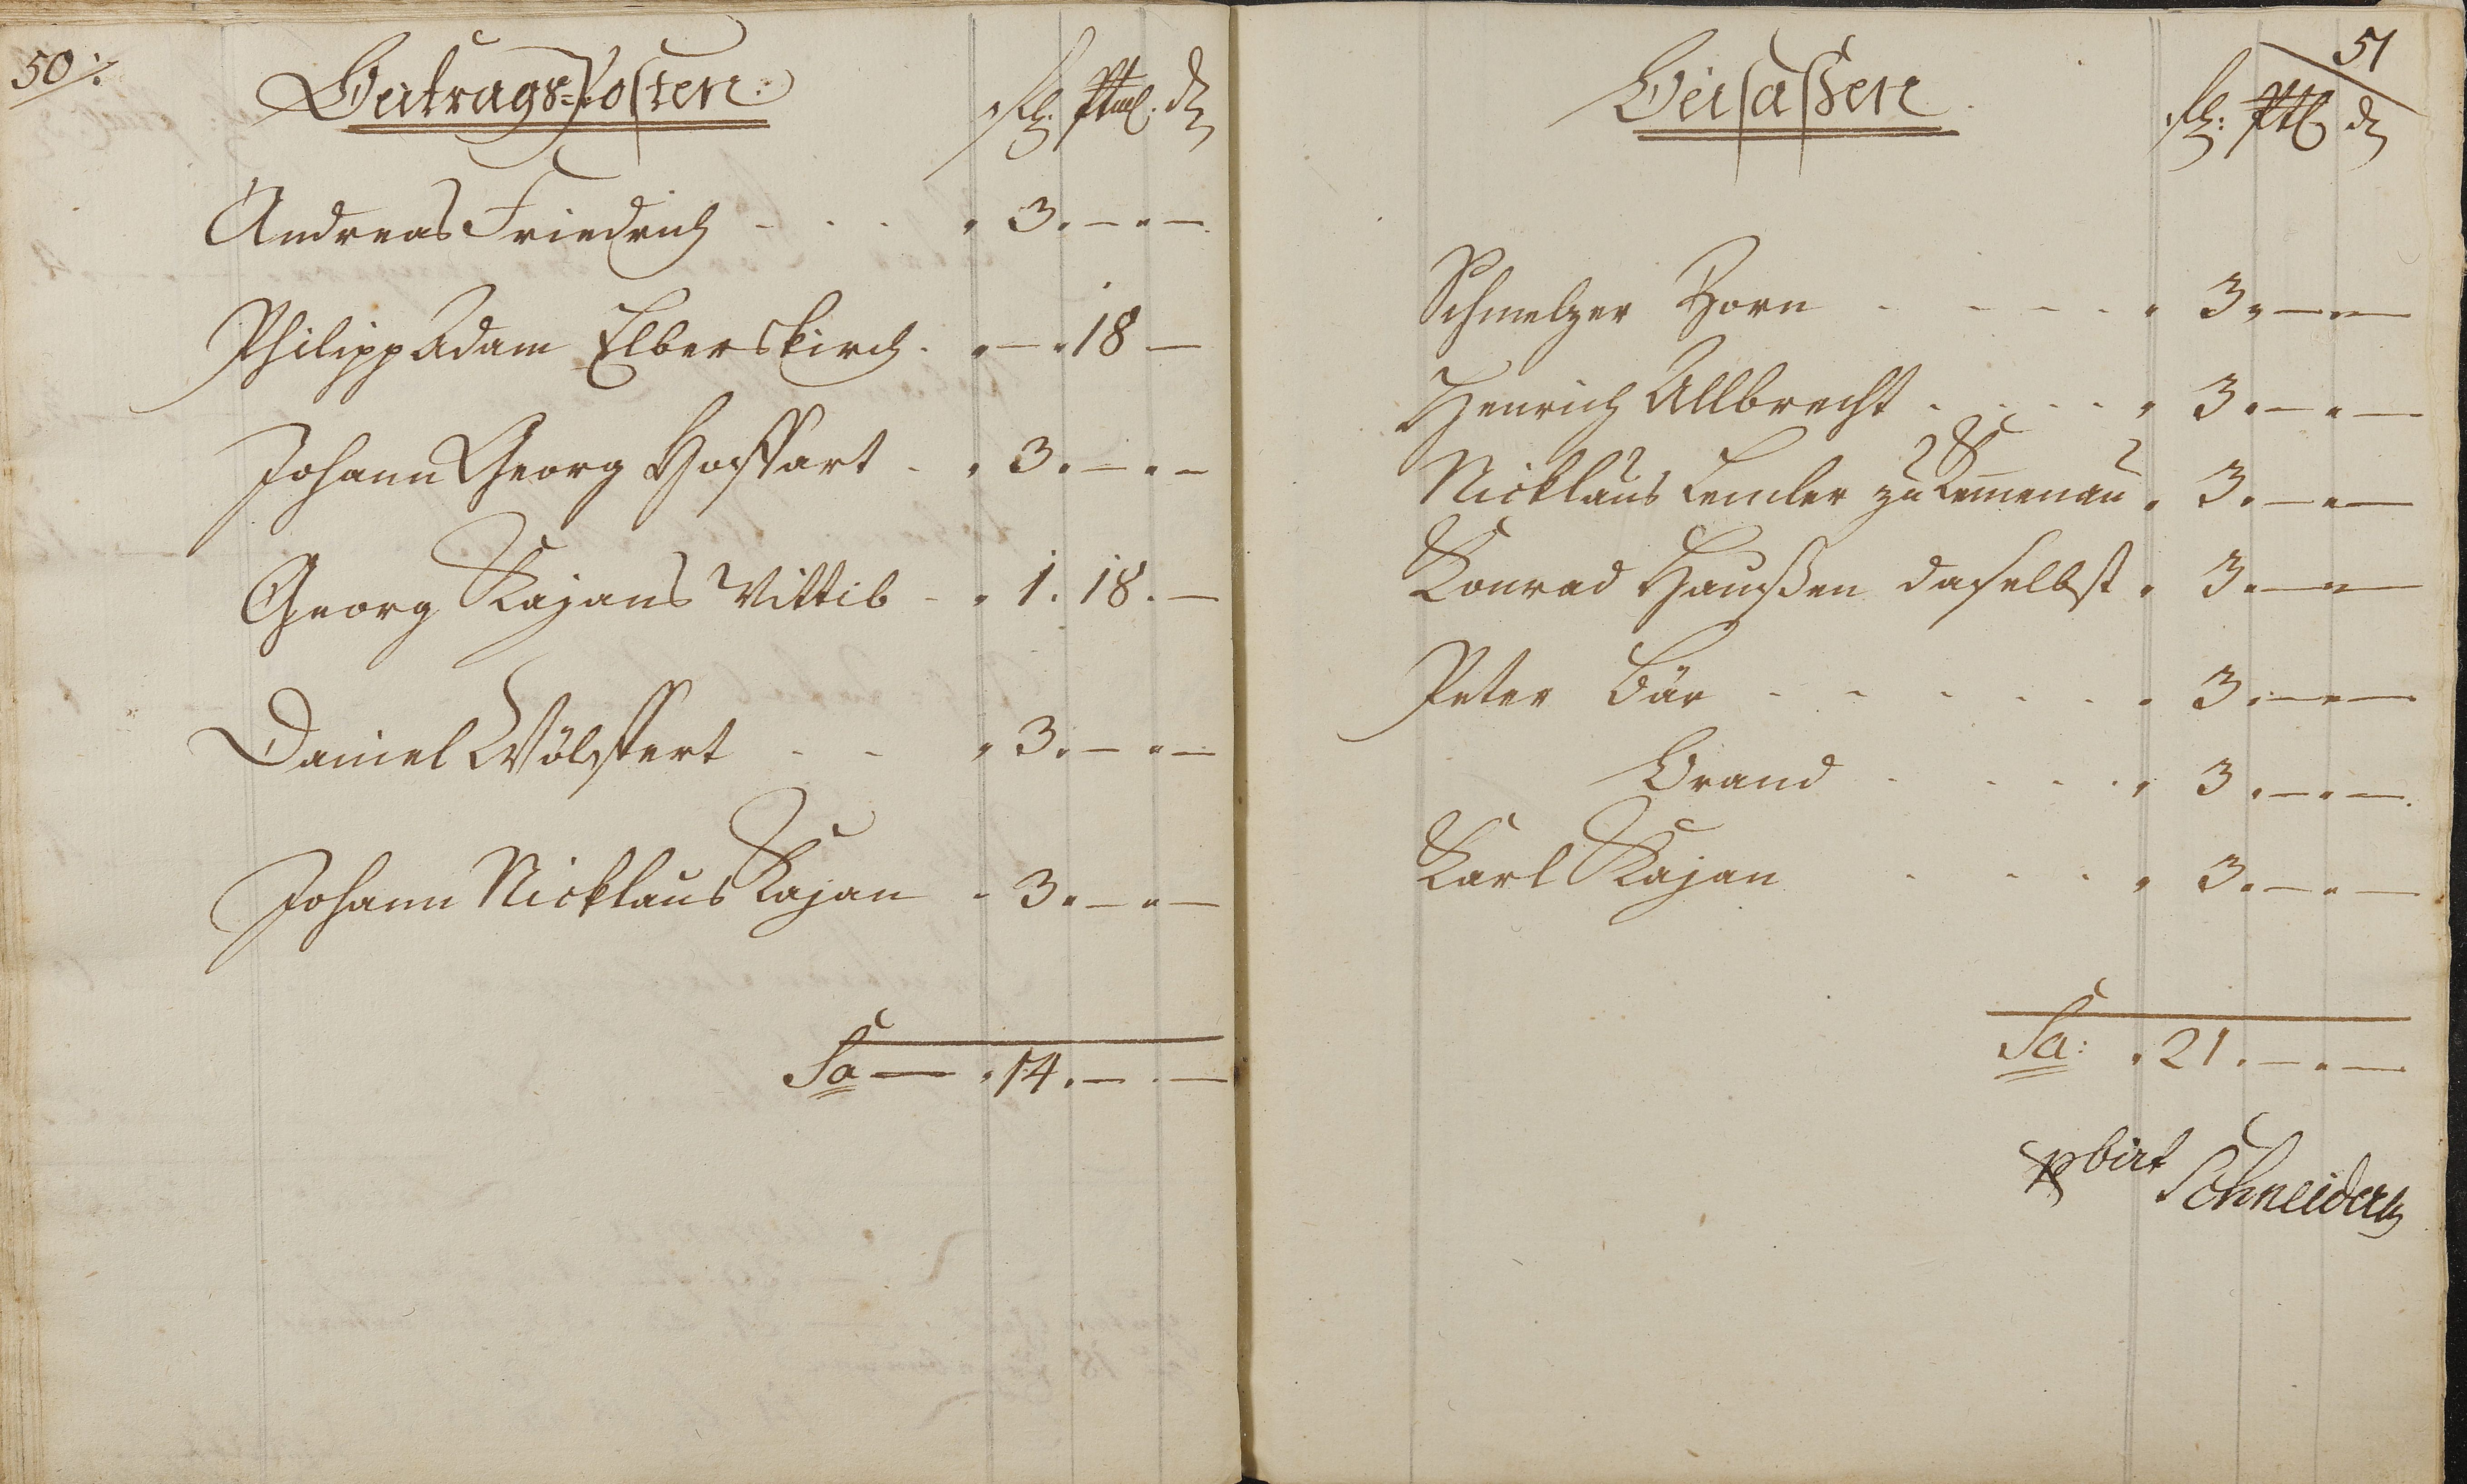 50
Beitrags-Posten
Andreas Friedrich . 3. — . —
Philipp Adam Elberskirch . — . 18 —
Johann Georg Hoffart . 3. — . —
Georg Kajans Wittib . 1. 18. —
Daniel Wölffert . 3. — . —
Johann Nicklaus Kajan . 3. — . —
Sa — . 14. — . —
51
Beisaßen
Schmelzer Horn . 3. — . —
Henrich Allbrecht . 3. — . —
Nicklaus Lemler zu . 3. — . —
Konrad Haußen daselbst . 3. — . —
Peter Bär . 3. — . —
Brand . 3. — . —
Karl Kajan . 3. — . —
Sa: . 21. — . —
Schneider